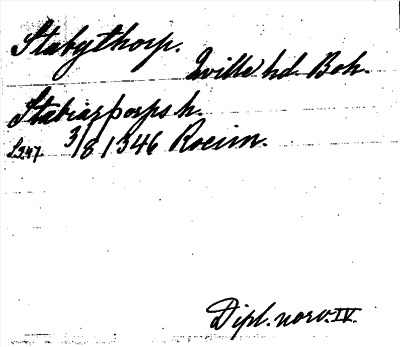 Stabythorp.
Qville hd. Boh.
Stabiarþorps h.
s. 247. 3/8 1346 Roeim.
Dipl. norv. IV.